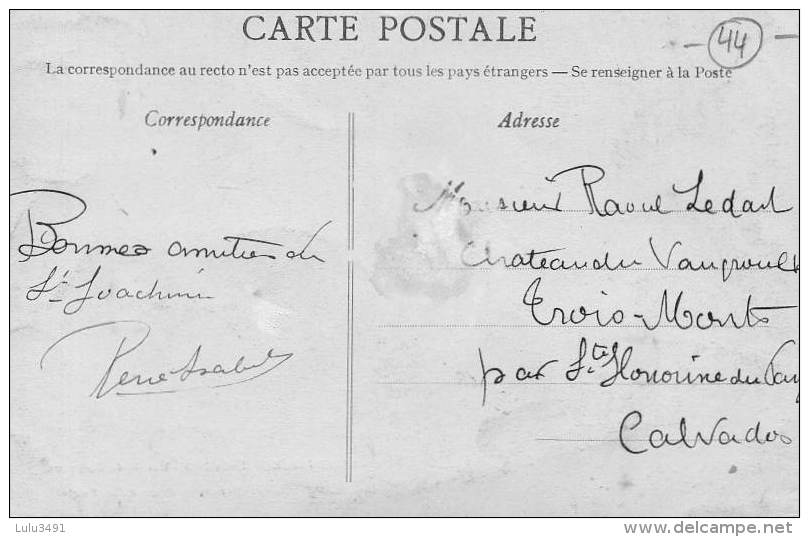 CARTE POSTALE
44
La correspondance au recto n'est pas acceptée par tous les pays étrangers — Se renseigner à la Poste
Correspondance
Bonnes amitiés de
St Joachim
René Isabel
Adresse
Monsieur Raoul Ledart
Chateau du
Trois-Monts
par Ste Honorine du
Calvados
Lulu3491
www.delcampe.net